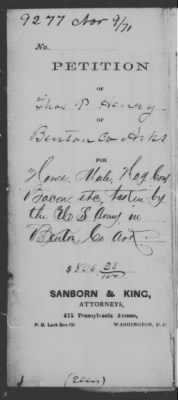 9277 Nov 9/71
No.
PETITION
OF
Thos P. Henry
OF
Benton Co Arks
FOR
Horse, Mule, Hog, Corn
Bacon, etc, taken by
the U S Army in
Benton Co Ark.
$826 25/100
SANBORN & KING,
ATTORNEYS,
475 Pennsylvania Avenue,
P. O. Lock Box
WASHINGTON, D. C.